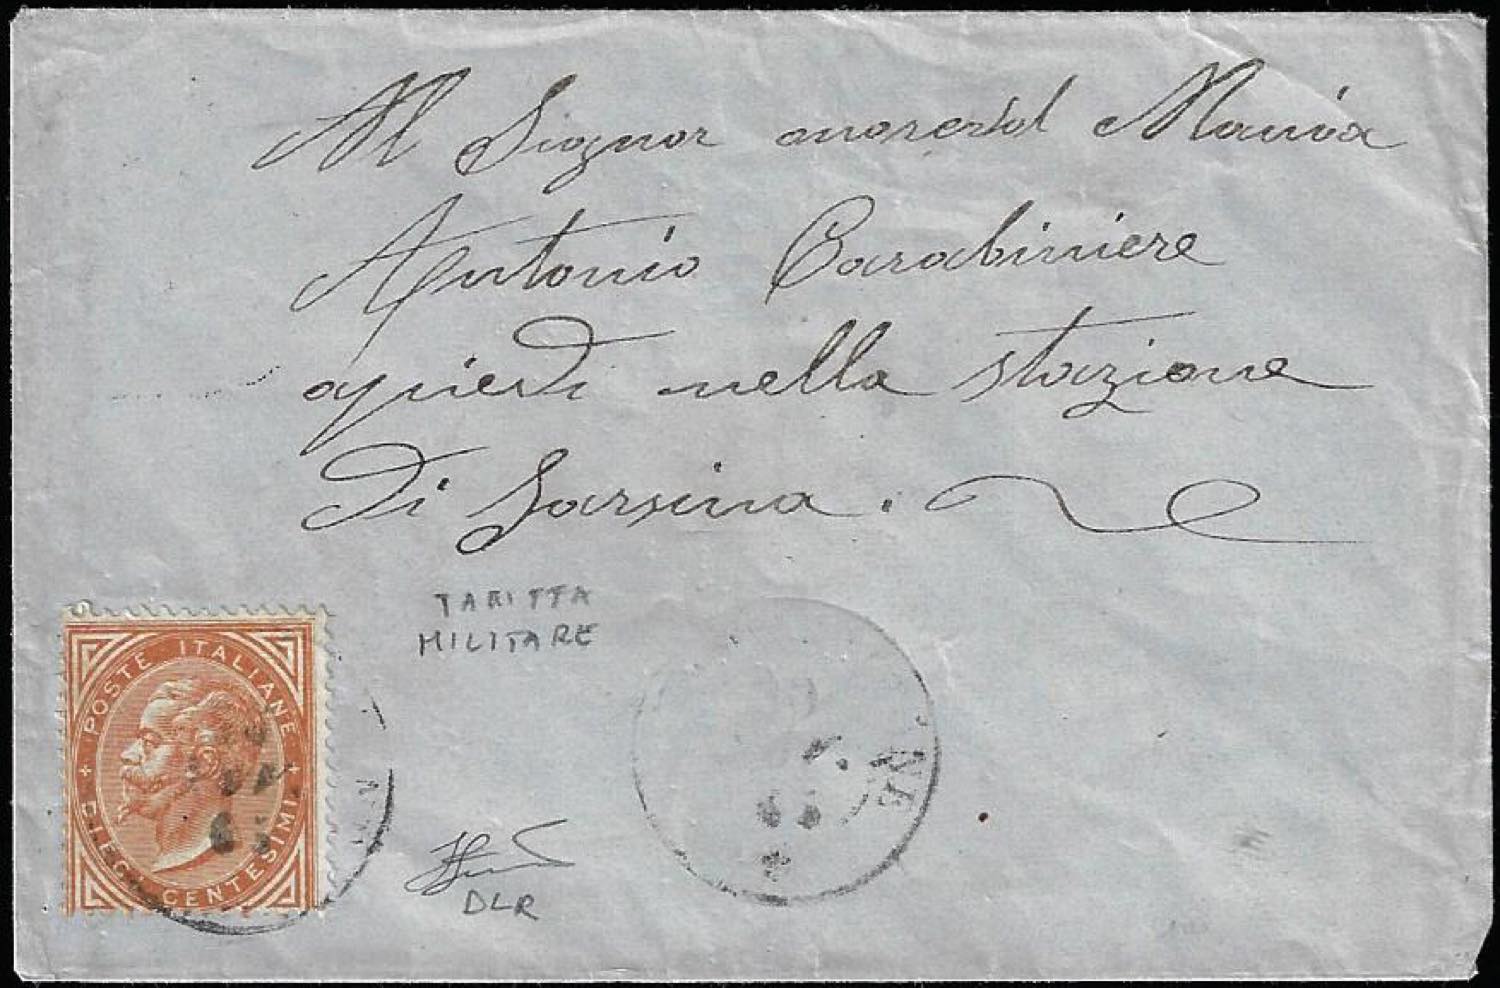 Al Signor
Antonio Carabiniere
apiedi nella stazione
Di Sarsina.
TARIFFA
MILITARE
POSTE ITALIANE
DIECI CENTESIMI
DLR